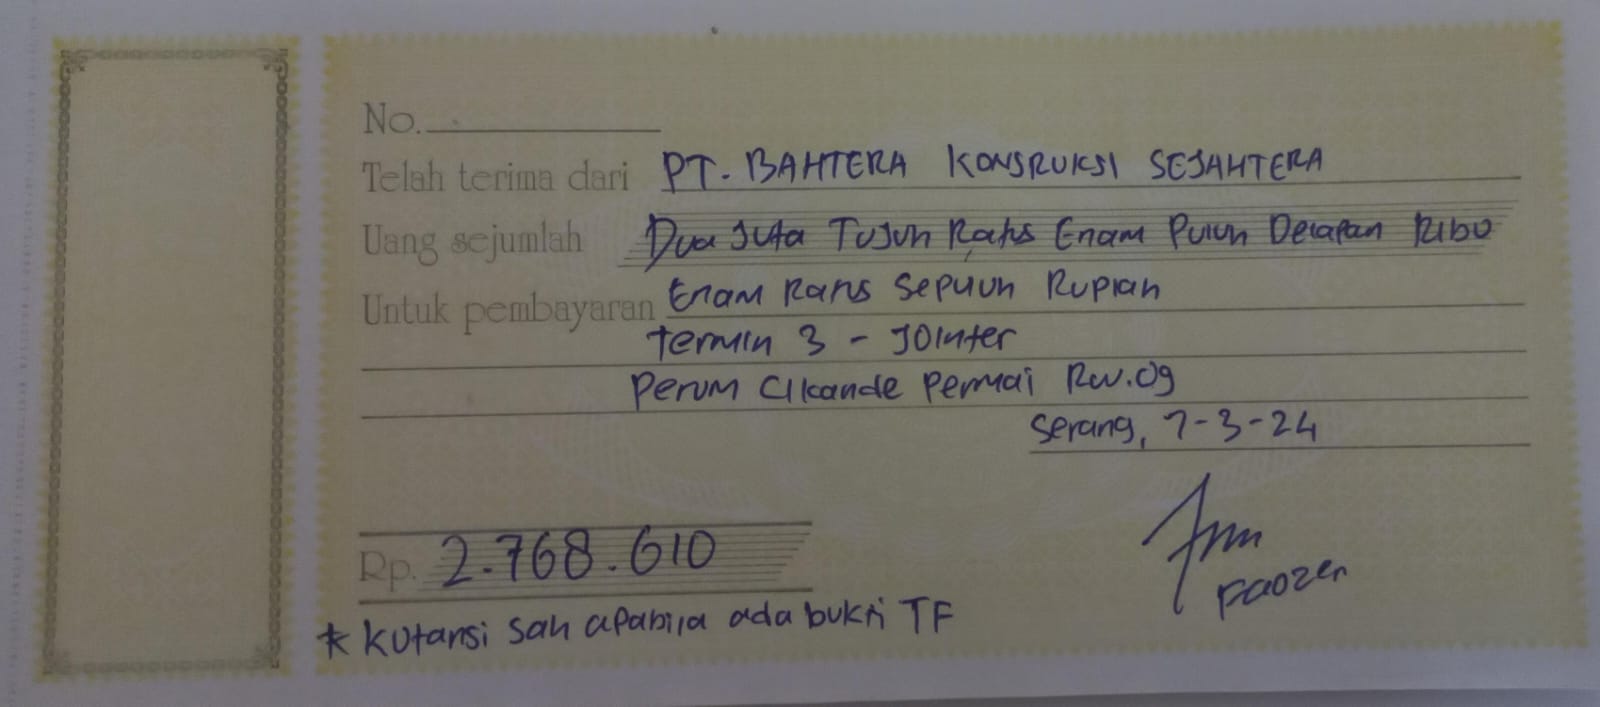 No.
Telah terima dari PT. BAHTERA KONSRUKSI SEJAHTERA
Uang sejumlah Dua Juta Tujuh Ratus Enam Puluh Delapan Ribu
Untuk pembayaran Enam Ratus Sepuluh Rupiah
Termin 3 - JOInter
Perum Cikande Permai Rw.09
Serang, 7-3-24
Rp. 2.768.610
Faozen
* Kutansi sah apabila ada bukti TF